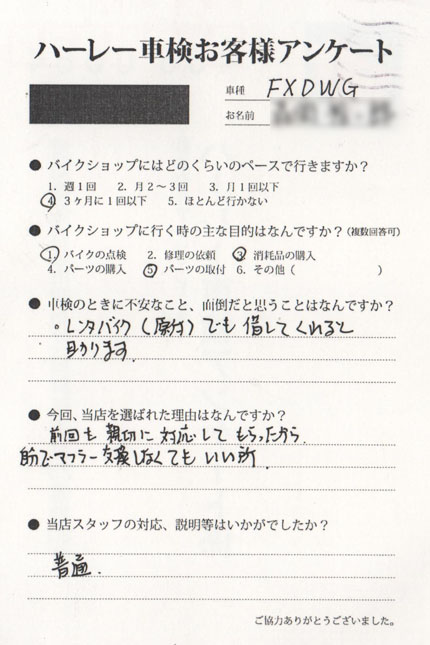 ハーレー車検お客様アンケート
車種 FXDWG
お名前
● バイクショップにはどのくらいのペースで行きますか？
1. 週１回 2. 月２～３回 3. 月１回以下
4. ３ヶ月に１回以下 5. ほとんど行かない
● バイクショップに行く時の主な目的はなんですか？（複数回答可）
1. バイクの点検 2. 修理の依頼 3. 消耗品の購入
4. パーツの購入 5. パーツの取付 6. その他（ ）
● 車検のときに不安なこと、面倒だと思うことはなんですか？
。レンタバイク（原付）でも 借してくれると
助かります。
● 今回、当店を選ばれた理由はなんですか？
前回も 親切に 対応して もらったから
自分でマフラー 交換しなくても いい所.
● 当店スタッフの対応、説明等はいかがでしたか？
普通.
ご協力ありがとうございました。